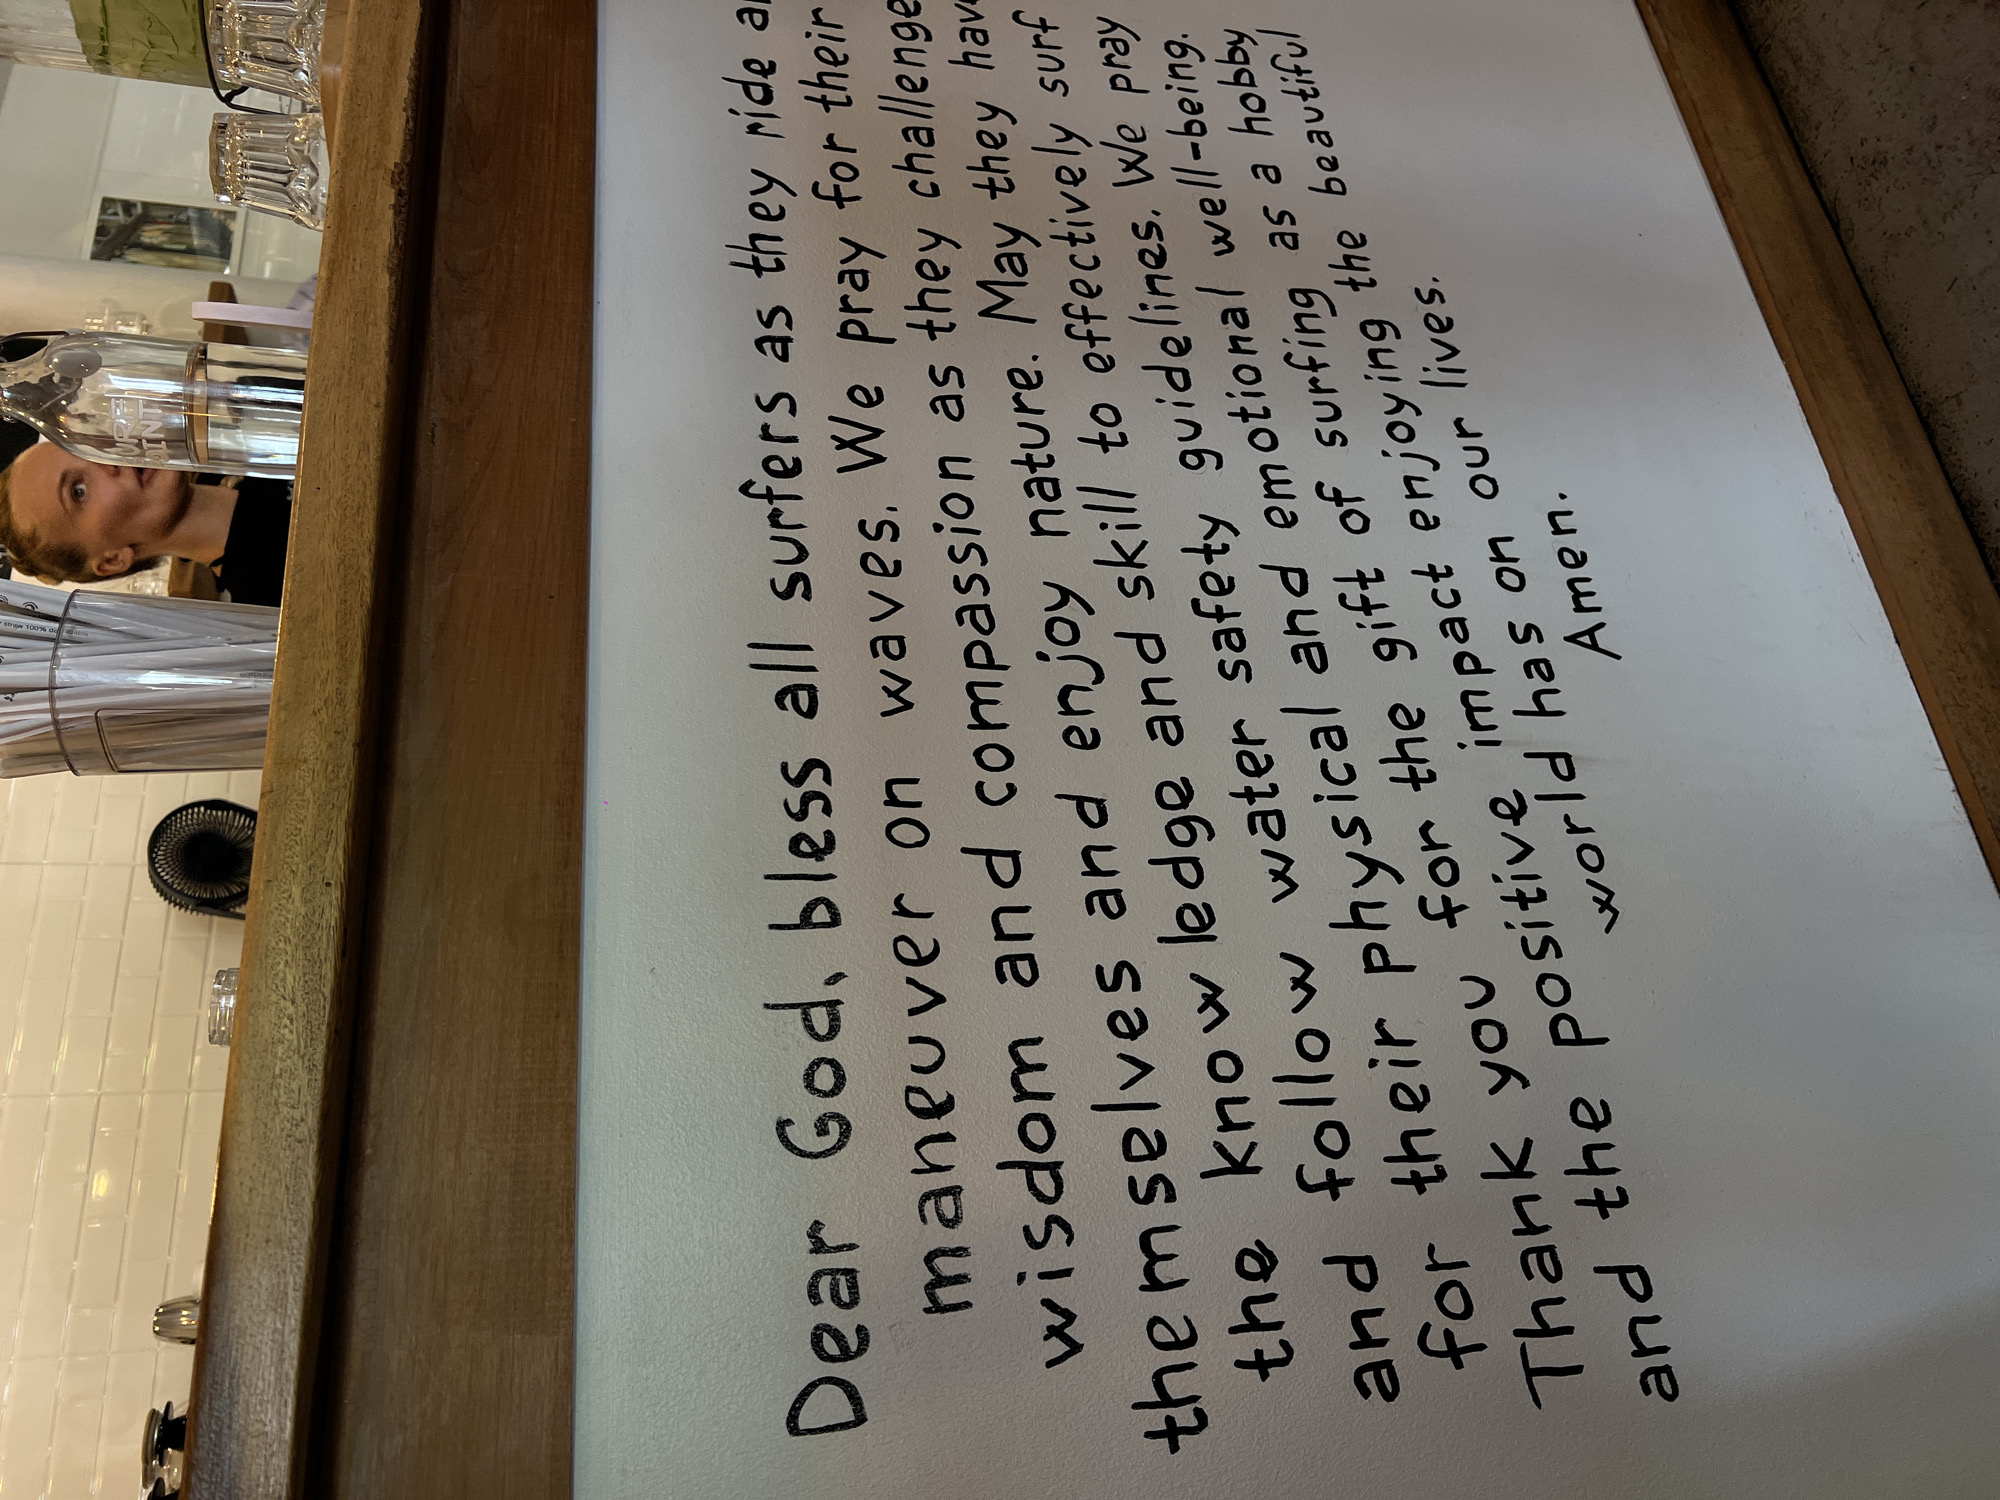 Dear God, bless all surfers as they ride
maneuver on waves. We pray for their
wisdom and compassion as they challenge
themselves and enjoy nature. May they have
the knowledge and skill to effectively surf
and follow water safety guidelines. We pray
for their physical and emotional well-being.
Thank you for the gift of surfing as a hobby
and the positive impact enjoying the beautiful
world has on our lives.
Amen.
straw 100%